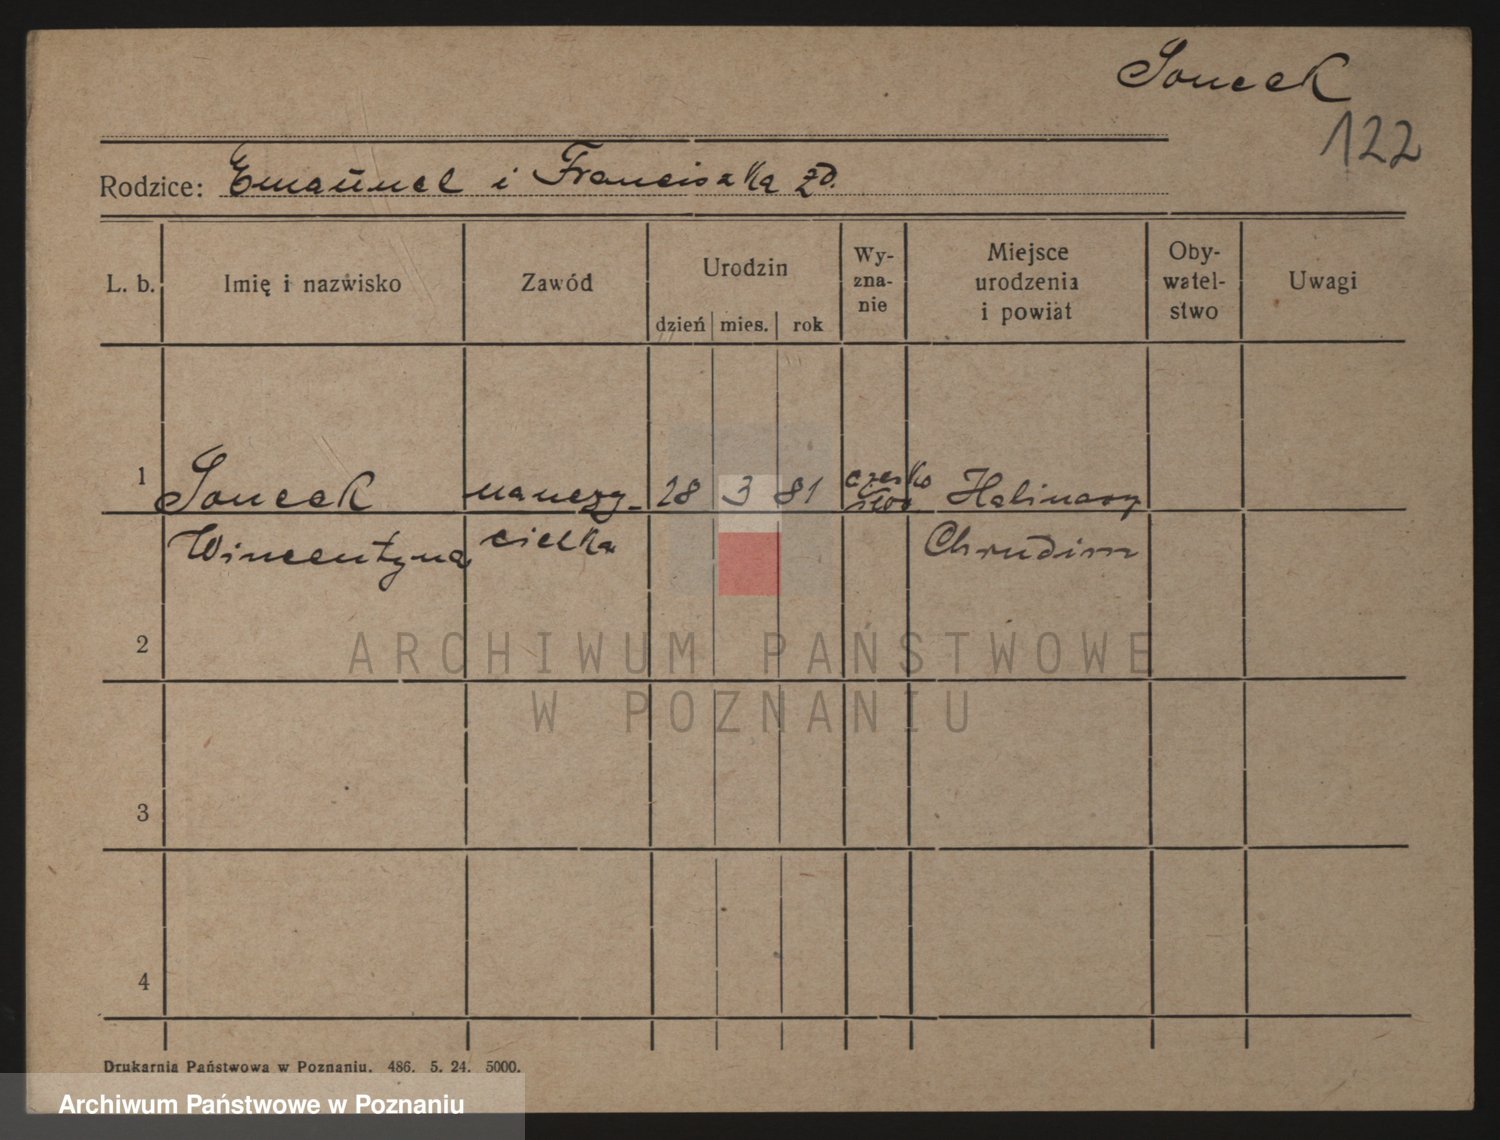 Soucek
122
Rodzice: Emanuel i Franciszka zd.
L. b.
Imię i nazwisko
Zawód
Urodzin
dzień mies. rok
Wy-
zna-
nie
Miejsce
urodzenia
i powiat
Oby-
watel-
stwo
Uwagi
1 Soucek nauczy- 28 3 81 czesko Halinary
Wincentyna cielka Chrudim
2
3
4
ARCHIWUM PAŃSTWOWE
W POZNANIU
Drukarnia Państwowa w Poznaniu. 486. 5. 24. 5000.
Archiwum Państwowe w Poznaniu